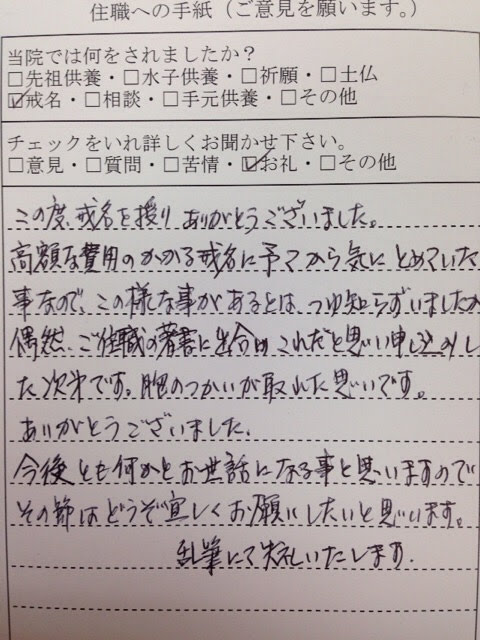 住職への手紙（ご意見を願います。）
当院では何をされましたか？
□先祖供養・□水子供養・□祈願・□土仏
☑戒名・□相談・□手元供養・□その他
チェックをいれ詳しくお聞かせ下さい。
□意見・□質問・□苦情・☑お礼・□その他
この度、戒名を授り ありがとうございました。
高額な費用のかかる戒名に予てから気にとめていた
事なので、この様な事があるとは、つゆ知らずいましたが
偶然、ご住職の著書に出合い これだと思い申し込みし
た次第です。胸のつかいが取れた思いです。
ありがとうございました。
今後とも何かとお世話になる事と思いますので
その節はどうぞ宜しくお願いしたいと思います。
乱筆にて失礼いたします.